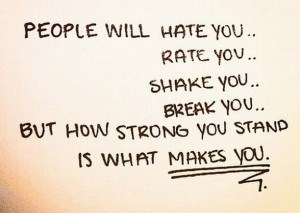 PEOPLE WILL HATE YOU..
RATE YOU..
SHAKE YOU..
BREAK YOU..
BUT HOW STRONG YOU STAND
IS WHAT MAKES YOU.